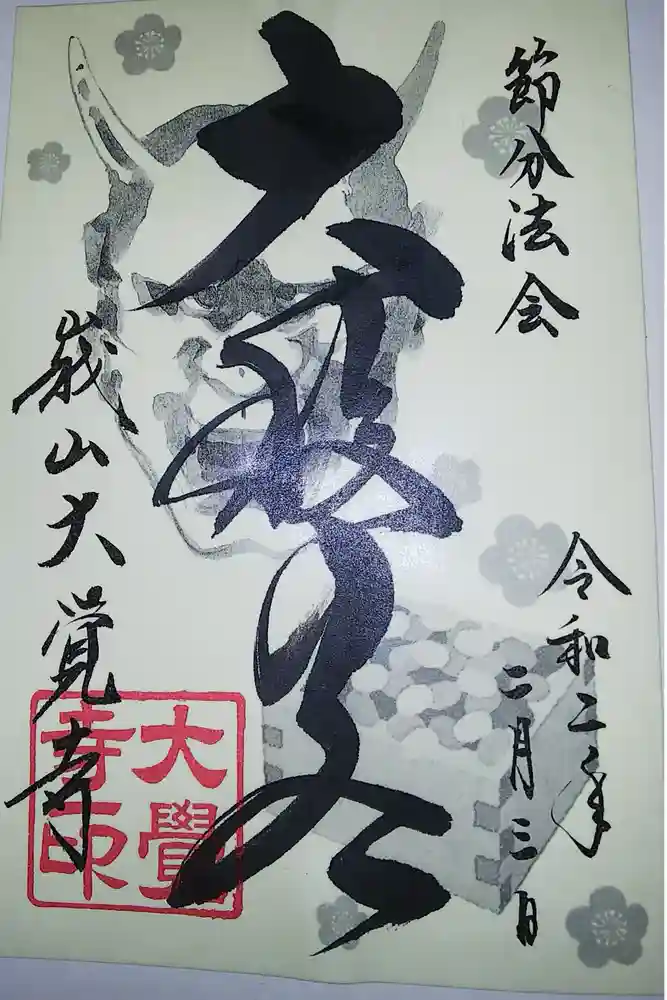 節分法会
令和二年
二月三日
山大覚寺
大覺
寺印